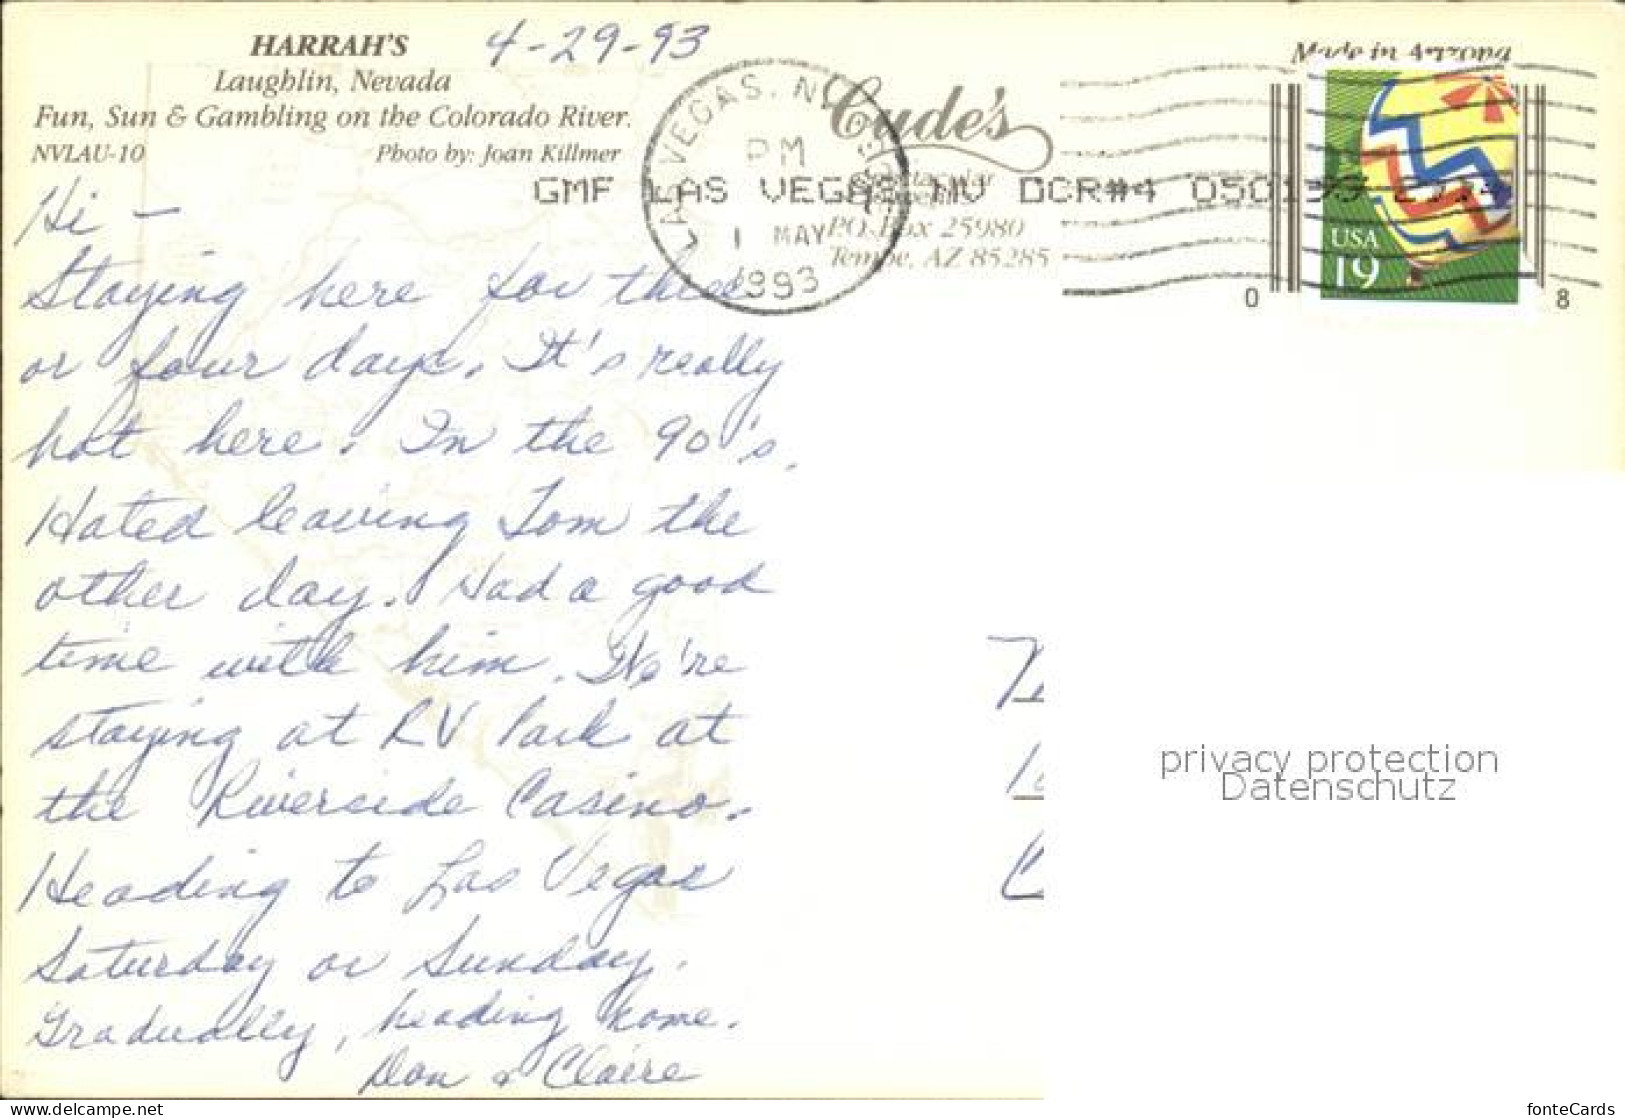 HARRAH'S
4-29-93
Laughlin, Nevada
Fun, Sun & Gambling on the Colorado River.
NVLAU-10 Photo by: Joan Killmer
Made in Arizona
Cude's
P.O. Box 25980
Tempe, AZ 85285
LAS VEGAS, NV
PM
1 MAY
1993
GMF LAS VEGAS NV DCR#4
USA
19
0 8
Hi —
Staying here for three
or four days. It's really
hot here. In the 90's.
Hated leaving Tom the
other day. Had a good
time with him. We're
staying at RV Park at
the Riverside Casino.
Heading to Las Vegas
Saturday or Sunday.
Gradually, heading home.
Don & Claire
privacy protection
Datenschutz
www.delcampe.net
fonteCards